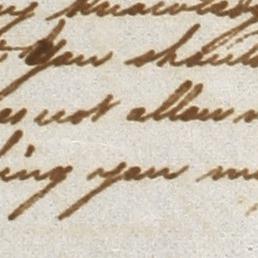 my knowledg
you should
not allow
ing you m